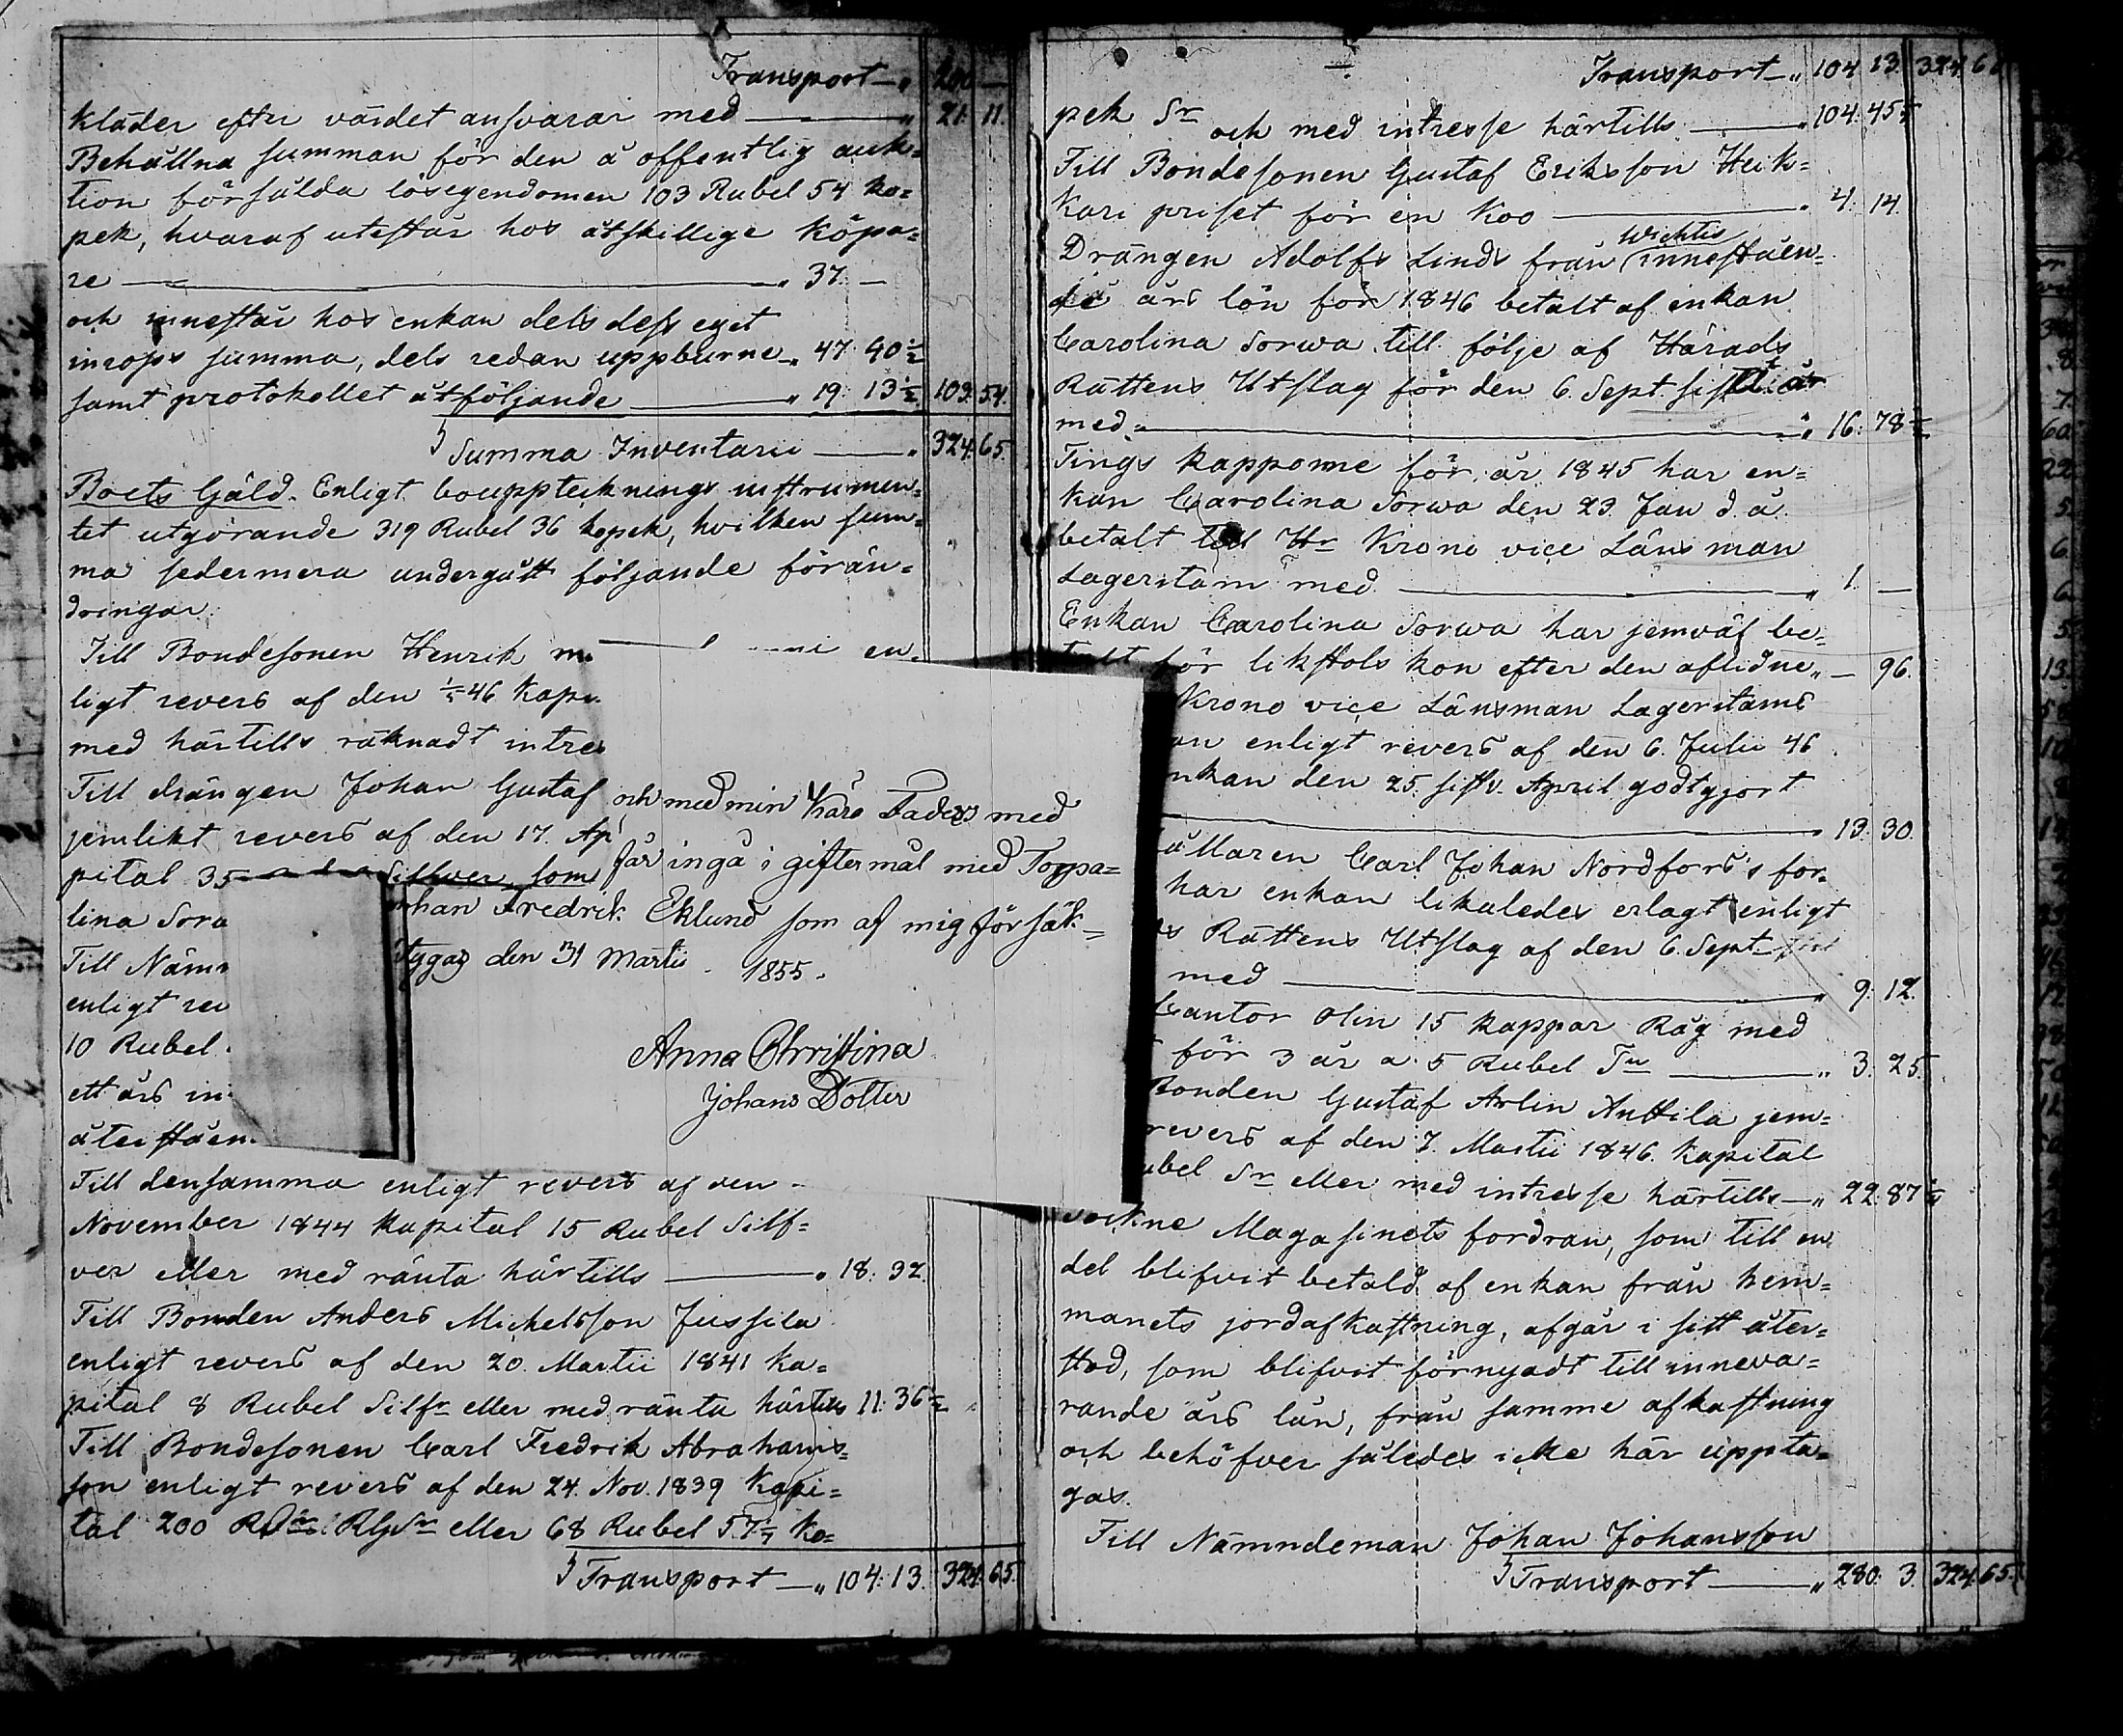 Transport — " 200 —
kläder efter värdet ansvarar med — " 21. 11.
Behållna summan för den å offentlig auk=
tion försålda lösegendomen 103 Rubel 54 ko=
pek, hvaraf utestår hos åtskillige köpa=
re — " 37. —
och innestår hos enkan dels dess eget
inrops summa, dels redan uppburne — " 47. 40½
samt protokollet åtföljande — " 19. 13½ 103. 54.
Summa Inventarii — " 324. 65.
Boets Gäld. Enligt bouppteknings instrumen=
tet utgörande 319 Rubel 36 kopek, hvilken sum=
ma sedermera undergått följande förän=
dringar.
Till Bondesonen Henrik en=
ligt revers af den 46 Kap
med härtills räknadt intre
Till drängen Johan Gustaf
jemlikt revers af den 17. Ap
pital 35 Silfver som
lina Sor
Till Näm
enligt rev
10 Rubel
ett års in
återståen
och med min Kära Faders med
får ingå i giftermål med Torpa=
Johan Fredrik Eklund som af mig försäk=
Nygas den 31 Martii 1855.
Anna Christina
Johans Dotter
Till densamma enligt revers af den
November 1844 kapital 15 Rubel Silf=
ver eller med ränta härtills — " 18. 32.
Till Bonden Anders Michelsson Jussila
enligt revers af den 20. Martii 1841 ka=
pital 8 Rubel Silfr eller med ränta härtills 11. 36½
Till Bondesonen Carl Fredrik Abrahams=
son enligt revers af den 24. Nov. 1839 Kapi=
tal 200 eller 68 Rubel 57 Ko=
Transport — " 104. 13. 324. 65.
Transport — " 104 13. 324 65
pek Sr och med intresse härtills — " 104. 45
Till Bondesonen Gustaf Eriksson Heik=
kari priset för en Koo — " 4. 14.
Wichtis
Drängen Adolfs Linds från innestäen=
de års lön för 1846 betalt af enkan
Carolina Sorwa till följe af Härads
Rättens Utslag för den 6. Sept. sistl. år
med — " 16. 78½
Tings kapporne för år 1845 har en=
kan Carolina Sorwa den 23 Jan d. å.
betalt till Hr Krono vice Länsman
Lagerstam med — " 1. —
Enkan Carolina Sorwa har jemväl be=
talt för likstols kon efter den aflidne " — 96.
Krono vice Länsman Lagerstams
an enligt revers af den 6. Julii 46
nkan den 25. sistl. April godtgjort
— 13. 30.
ållaren Carl Johan Nordfors's for=
har enkan likaledes erlagt enligt
s Rättens Utslag af den 6. Sept.
med — " 9. 12.
Cantor Olin 15 kappar Råg med
för 3 år a 5 Rubel Tn — " 3. 25.
Bonden Gustaf Arlin Anttila jem=
revers af den 7. Martii 1846. Kapital
ubel Sr eller med intresse härtills — " 22. 87½
Sockne Magasinets fordran, som till en
del blifvit betald af enkan från hem=
manets jordafkastning, afgår i sitt åter=
stod, som blifvit förnyadt till inneva=
rande års lån, från samme afkastning
och behöfver således icke här uppta=
gas.
Till Nämndeman Johan Johansson
Transport — " 280. 3. 324. 65.